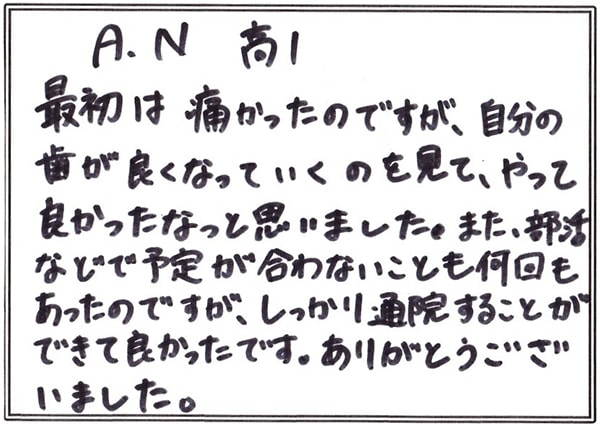 A.N 高1
最初は痛かったのですが、自分の
歯が良くなっていくのを見て、やって
良かったなっと思いました。また、部活
などで予定が合わないことも何回も
あったのですが、しっかり通院することが
できて良かったです。ありがとうござ
いました。